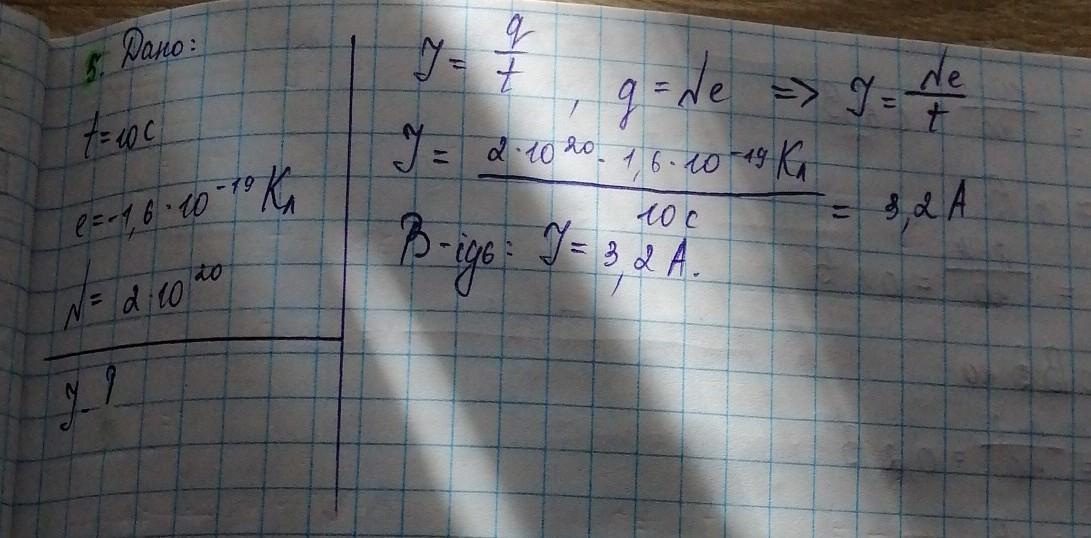 5. Дано:
t=10с
e=-1,6·10⁻¹⁹Кл
N= 2·10²⁰
I-?
I= q/t , q=Ne => I= Ne/t
I= 2·10²⁰·1,6·10⁻¹⁹Кл / 10с = 3,2A
В-ідь: I= 3,2A.